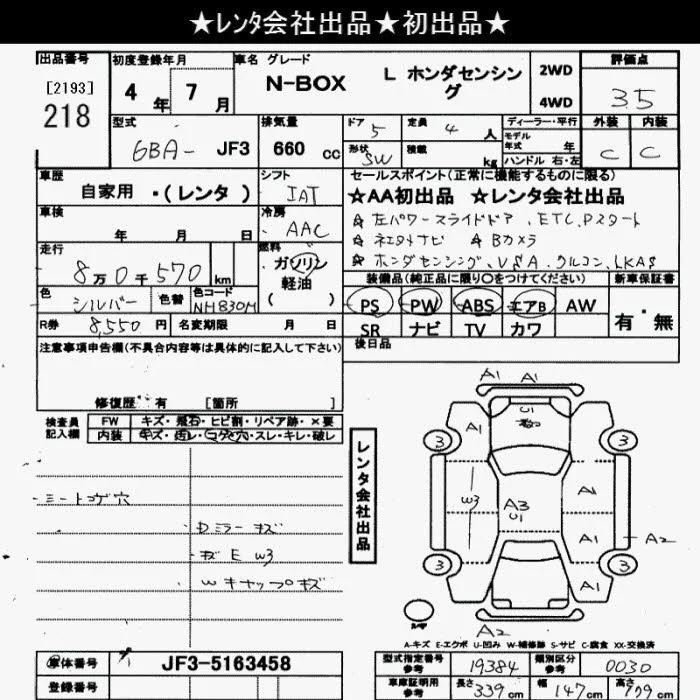 ★レンタ会社出品★初出品★
出品番号 初度登録年月 車名 グレード 評価点
[2193]
218
4年 7月
N-BOX
L ホンダセンシング
2WD
4WD
3.5
型式
6BA- JF3
排気量
660 cc
ドア 5
定員 4 人
形状 SW
積載 kg
ディーラー・平行
モデル
年式 年
ハンドル 右・左
外装 内装
C C
車歴
自家用 ・(レンタ)
シフト
IAT
セールスポイント(正常に機能するものに限る)
★AA初出品 ★レンタ会社出品
☆ 左パワースライドドア、ETC、Pスタート
☆ 純正ナビ ☆ Bカメラ
☆ ホンダセンシング、VSA、クルコン、LKAS
車検
年 月 日
冷房
AAC
走行
8万0千570 km
燃料
ガソリン
軽油
( )
色
シルバー
色替
色コード
NH830M
R券 8,550 円
名変期限 月 日
装備品(純正品に限り○をつけてください)
新車保証書
PS PW ABS エアB AW
SR ナビ TV カワ
有・無
後日品
注意事項申告欄(不具合内容等は具体的に記入して下さい)
修復歴 有 [箇所
検査員
記入欄
FW キズ・飛石・ヒビ割・リペア跡・×要
内装 キズ・汚レ・コゲ穴・スレ・キレ・破レ
シートコゲ穴
Dミラーキズ
キズ E W3
Wキャップキズ
レンタ会社出品
A1 A1
A1
U1
3 3
W3
A3
U1
A1
A2
A1
3 3
A2
A-キズ E-エクボ U-凹み W-補修跡 S-サビ C-腐食 XX-交換済
車体番号 JF3-5163458
登録番号
型式指定番号
参考
19384
類別区分
参考
0030
車庫証明用
参考
長さ 339 cm
幅 147 cm
高さ 179 cm